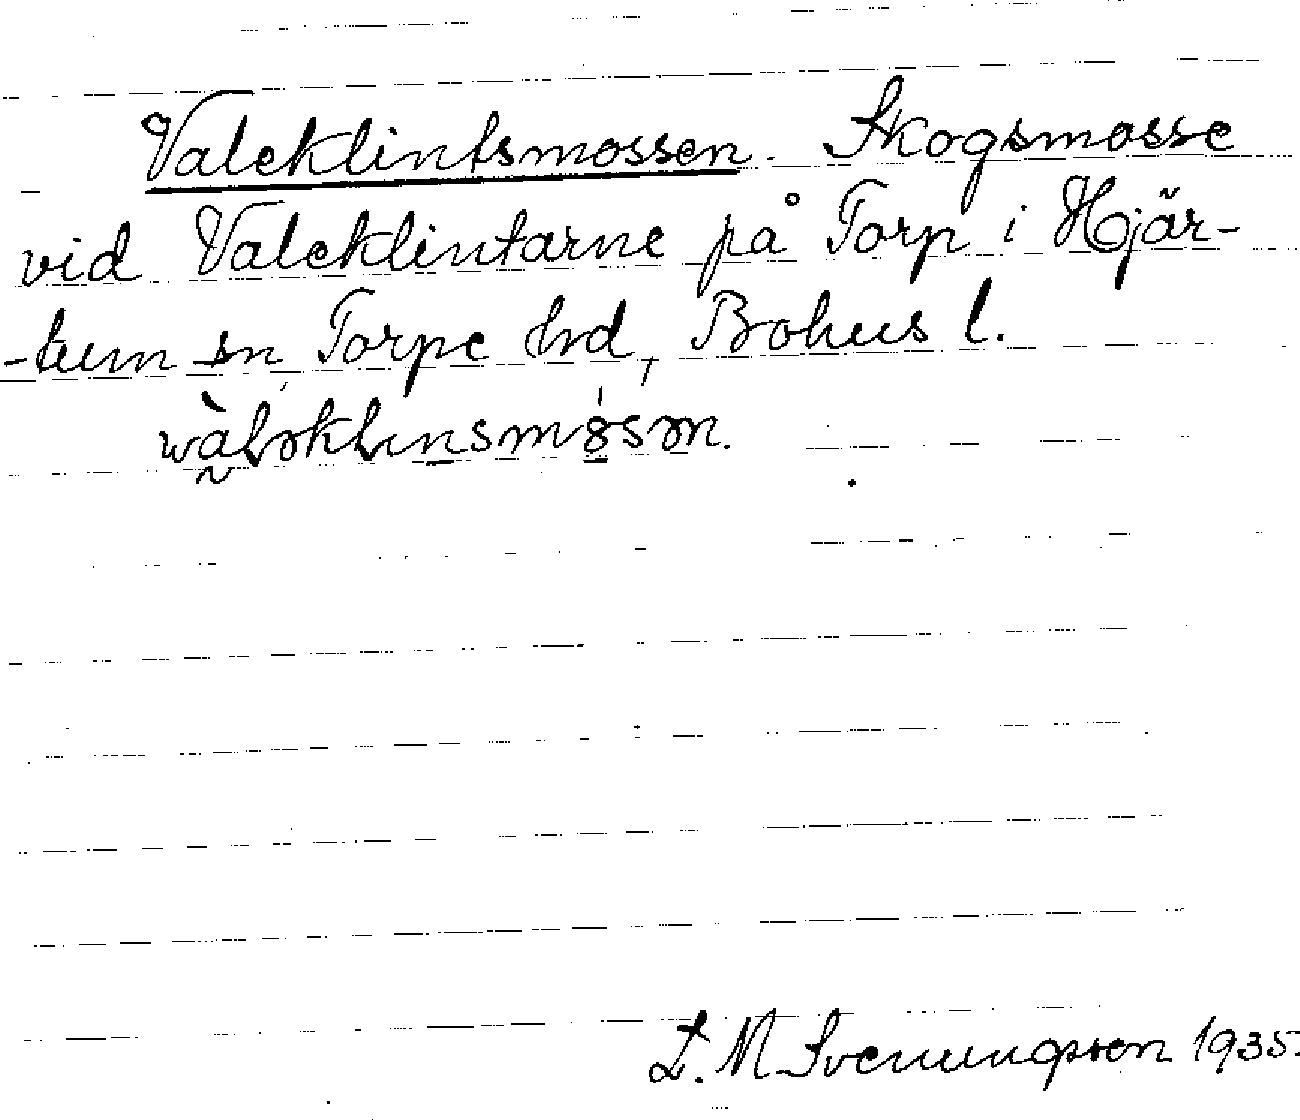 Valeklintsmossen. Skogsmosse
vid Valeklintarne på Torp i Hjär-
-tum sn Torpe hrd, Bohus l.
L. M Svenungsson 1935.